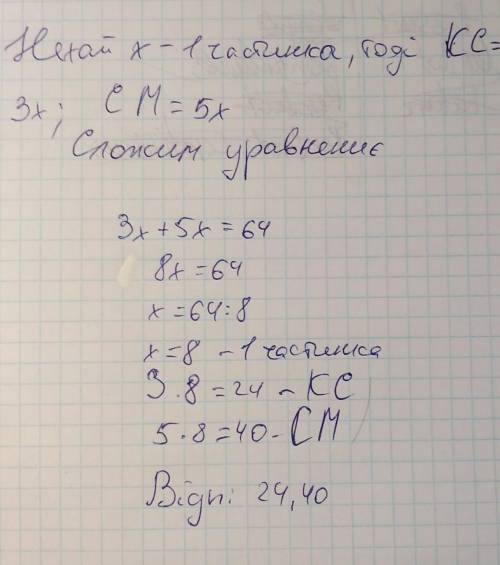 Нехай х - 1 частинка, тоді КС=
3х; СМ = 5х
Сложим уравнение
3х + 5х = 64
8х = 64
х = 64 : 8
х = 8 - 1 частинка
3 · 8 = 24 - КС
5 · 8 = 40 - СМ
Відп: 24, 40